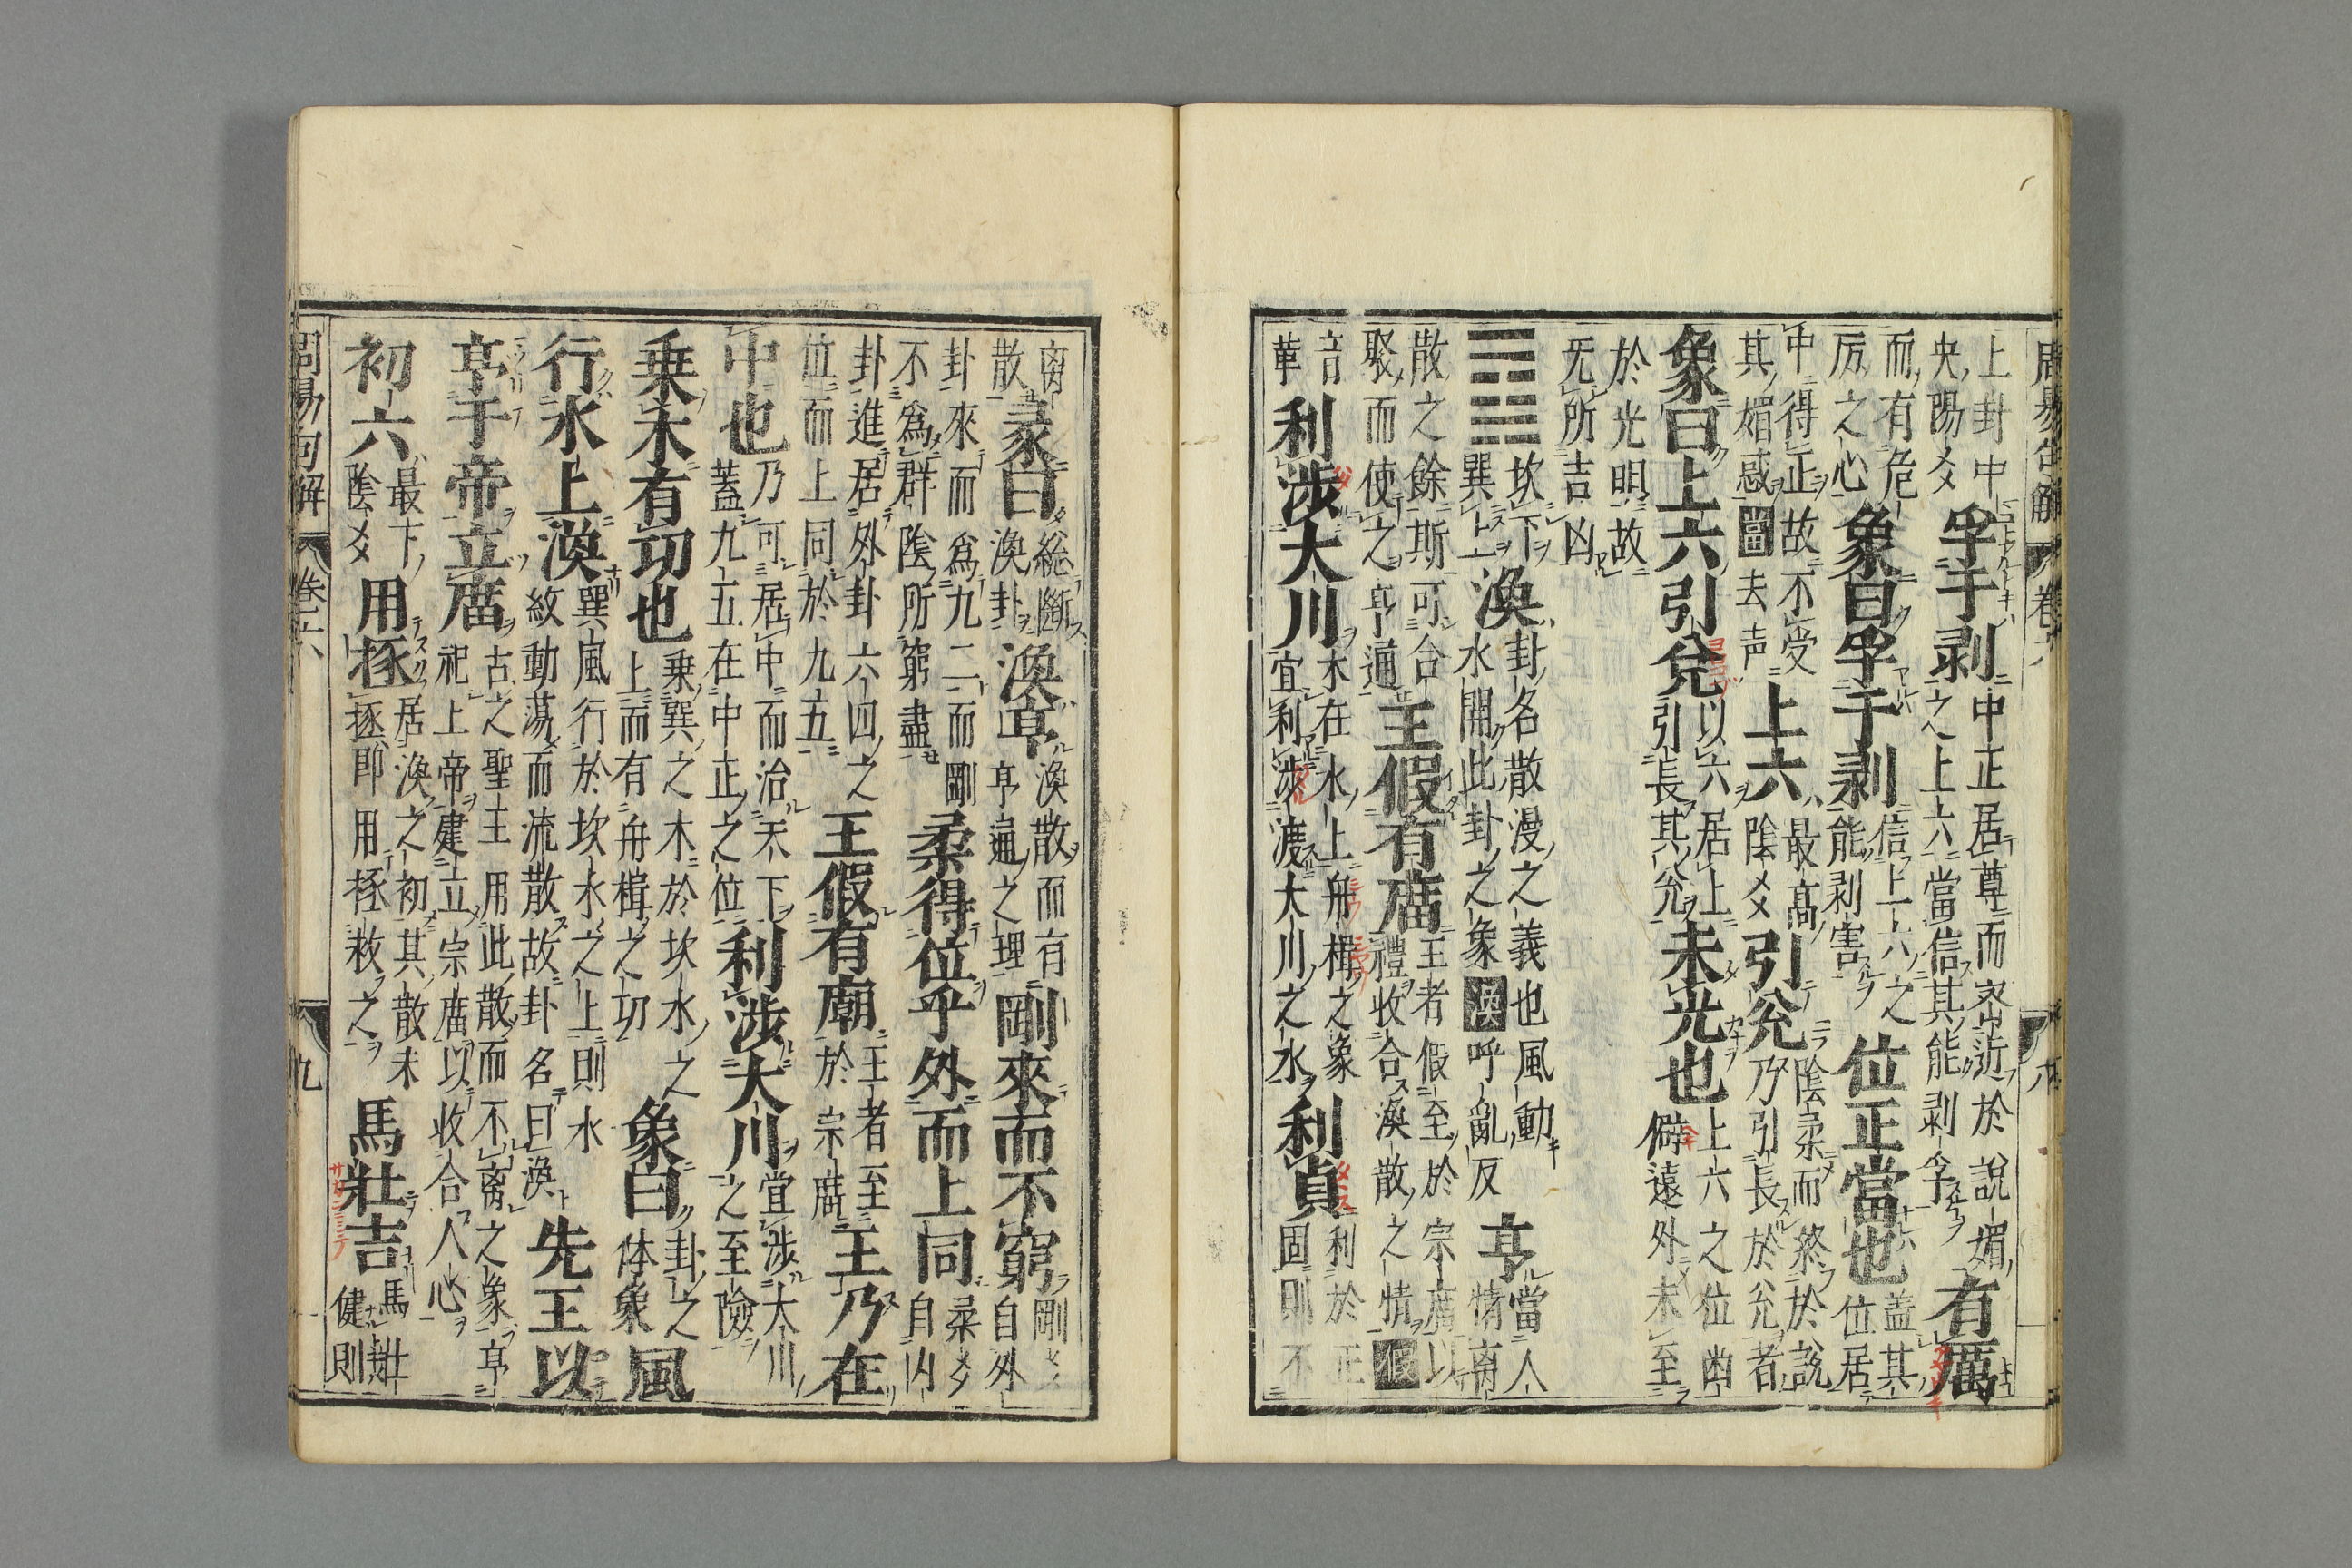 周易句解 卷六 八
上卦中央陽爻孚于剥中正居尊而密近於說媚之上六當信其能剥孚有厲
而有危厉之心象曰孚于剥信上六之能剥害位正當也盖其位居
中得正故不受其媚惑當去声上六最高陰爻引兊陰柔而終於說乃引長於兊者
象曰上六引兊以六居上引長其兊未光也上六之位幽僻遠外未至
於光明故无所吉凶
䷺坎下巽上渙卦名散漫之義也風動水開此卦之象渙呼亂反亨當人情离
散之餘斯可合聚而使之亨通王假有庿王者假至於宗庿以禮收合渙散之情假
音革利涉大川木在水上舟楫之象宜利涉渡大川之水利貞利於正固則不
离散彖曰総断渙卦渙亨渙散而有亨通之理剛來而不窮剛自外
卦來而爲九二而剛不爲群陰所窮盡柔得位乎外而上同柔爻自内
卦進居外卦六四之位而上同於九五王假有廟王者至於宗庿王乃在
中也乃可居中而治天下蓋九五在中正之位利涉大川宜涉大川之至險
乗木有功也乗巽之木於坎水之上而有舟楫之功象曰卦之体象風
行水上渙巽風行於坎水之上則水紋動蕩而流散故卦名曰渙先王以
亨于帝立庿古之聖王用此散而不离之象亨祀上帝建立宗庿以收合人心
初六最下陰爻用拯居渙之初其散未拯即用拯救之馬壯吉馬壯健則
周易句解 卷六 九